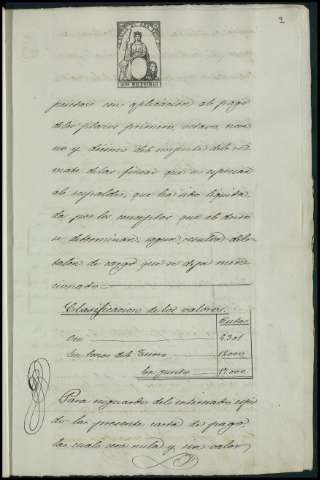 2
pesetas con aplicacion al pago
de los plazos primero, octavo, nove
no y décimo del importe del re
mate de las fincas que se expresan
al respaldo, que ha sido liquida
da por los conceptos que al dorso
se determinan, segun resulta del
talon de cargo que se deja men
cionado.
Clasificacion de los valores.
Pesetas
En
En bonos del Tesoro
En junto
Para resguardo del interesado espi
do la presente carta de pago,
la cual será nula y sin valor